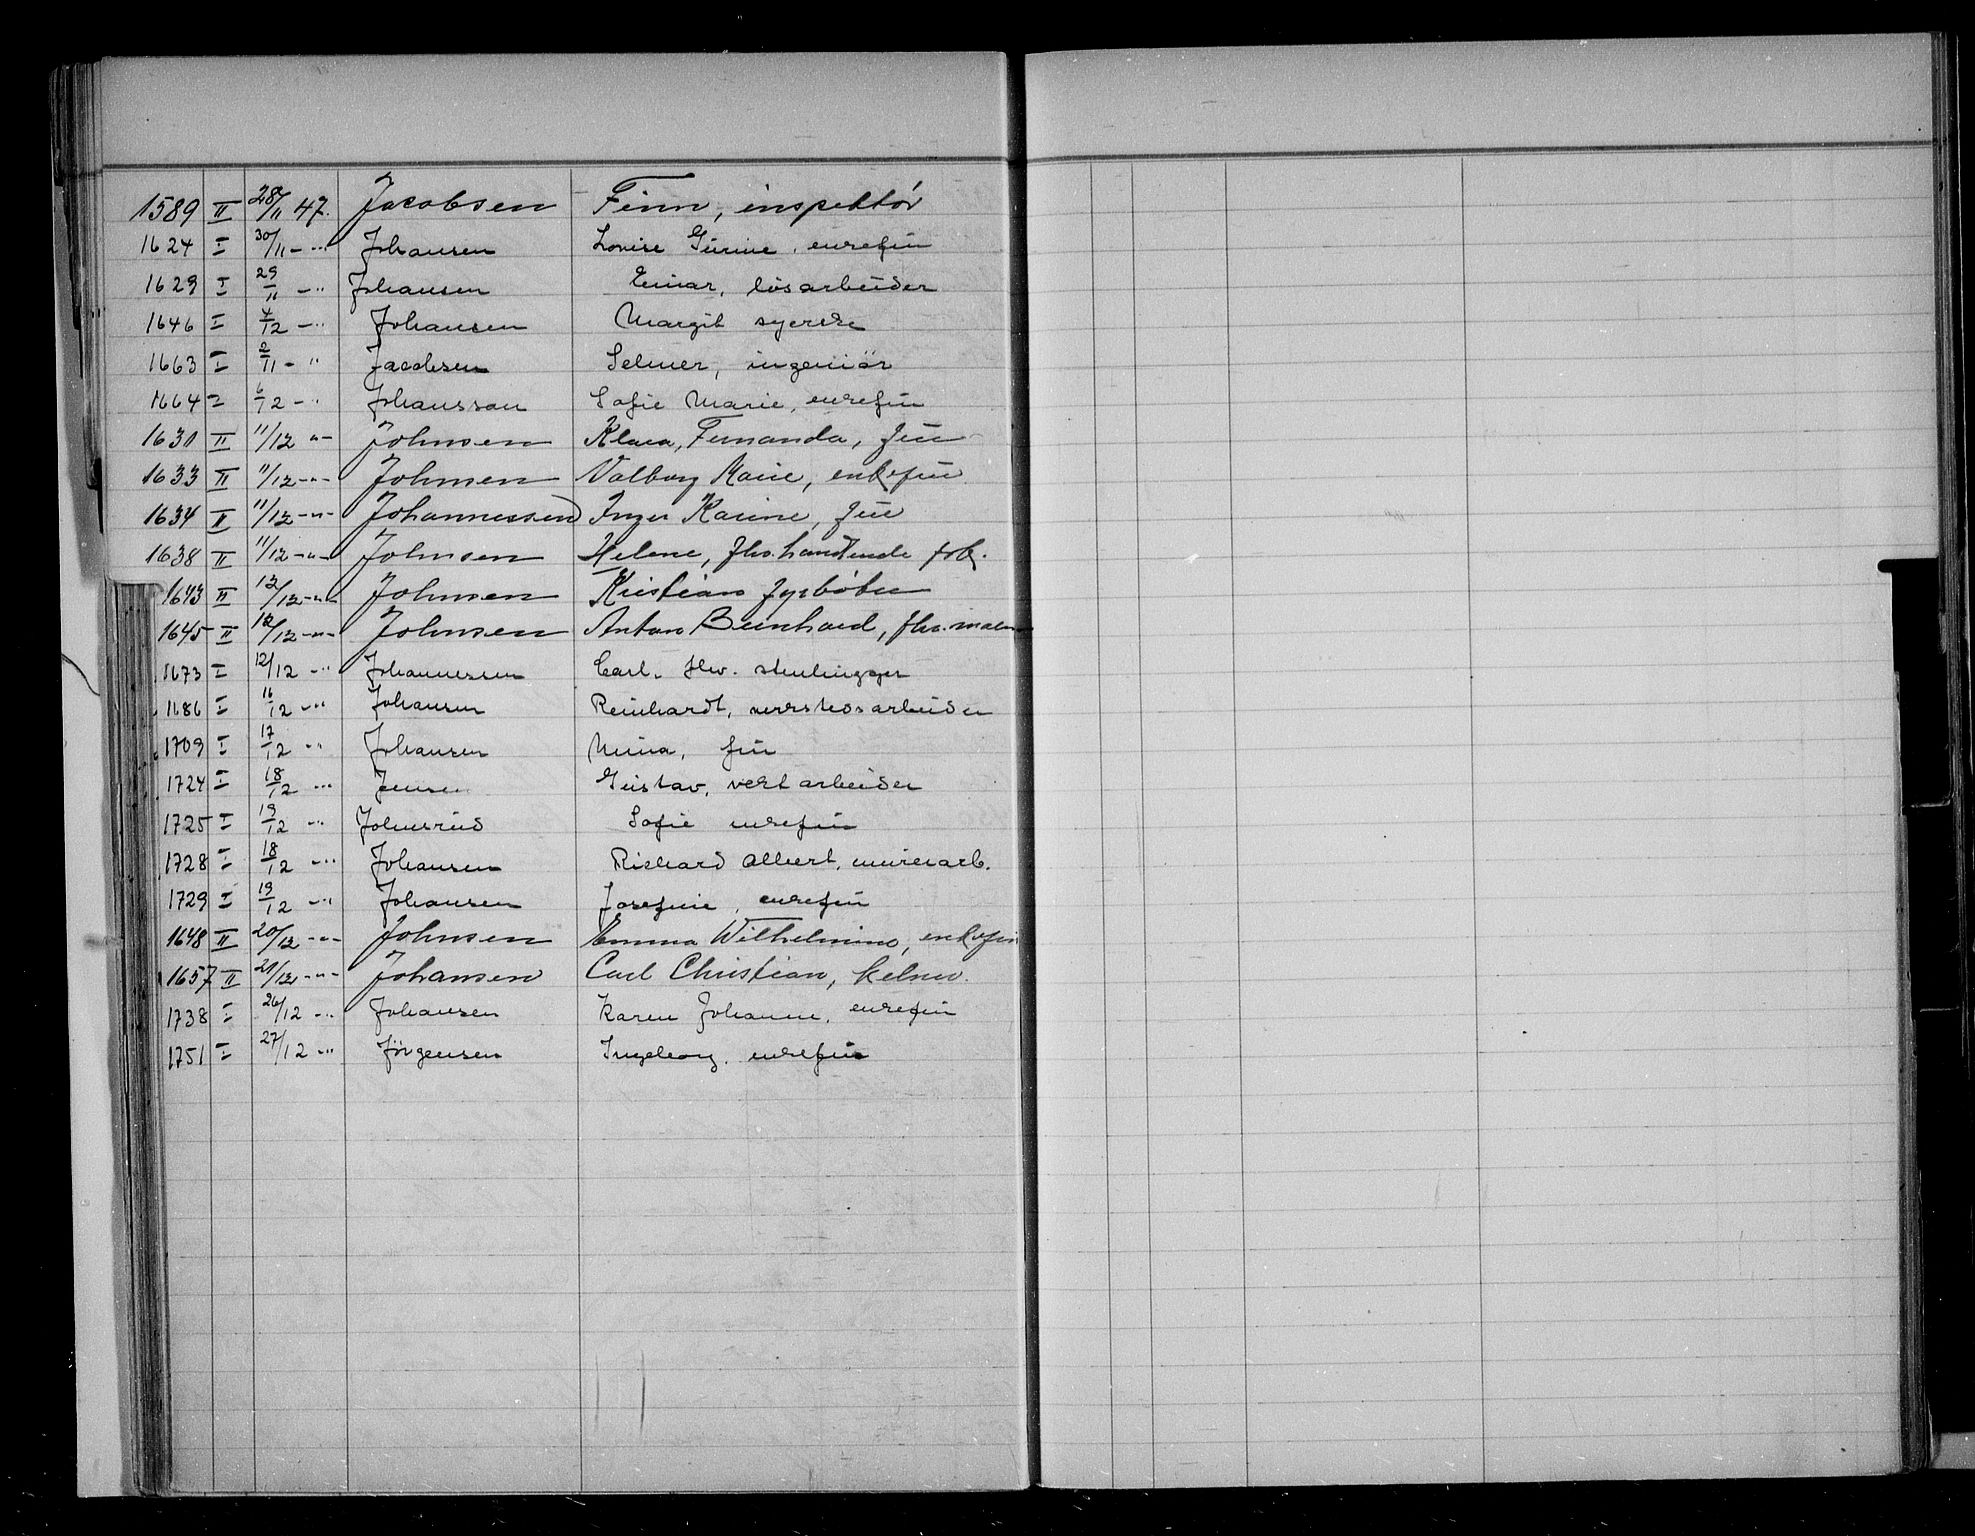 1589 II 28/11 47. Jacobsen Finn, inspektör
1624 I 30/11 - " Johansen Lovise Gurine, enkefru
1629 I 29/11 - " Johansen Einar, løsarbeider
1646 I 4/12 - " Johansen Margit syerske
1663 I 2/11 - " Jacobsen Selmer, ingeniör
1664 I 6/12 - " Johansson Sofie Marie, enkefru
1630 II 11/12 " - Johnsen Klara, Fernanda, fru
1633 II 11/12 - " - Johnsen Valborg Marie, enkefru
1634 II 11/12 - " - Johannessen Inger Karine, fru
1638 II 11/12 - " - Johnsen Helene, fhv. handlende frk.
1643 II 12/12 - " - Johnsen Kristian fyrbøter
1645 II 12/12 - " - Johnsen Anton Bernhard, fhv. maler
1673 I 12/12 - " Johannessen Carl. fhv. stenhugger
1686 I 16/12 - " Johansen Reinhardt, verkstedsarbeider
1709 I 17/12 " Johansen Mina, fru
1724 I 18/12 - " Jensen Gustav, verkt arbeider
1725 I 19/12 - " Johnsrud Sofie enkefru
1728 I 18/12 - " Johansen Richard Albert, murerarb.
1729 I 19/12 - " Johansen Josefine, enkefru
1648 II 20/12 - " - Johnsen Emma Wilhelmine, enkefru
1657 II 21/12 - " - Johansen Carl Christian, kelner.
1738 I 26/12 - " Johansen Karen Johanne, enkefru
1751 I 27/12 - " Jörgensen Ingeborg. enkefru